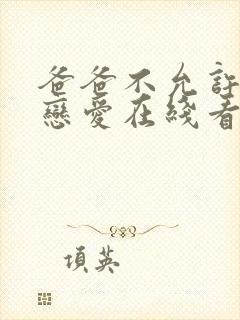 爸爸不允許
戀愛在綫看
項英